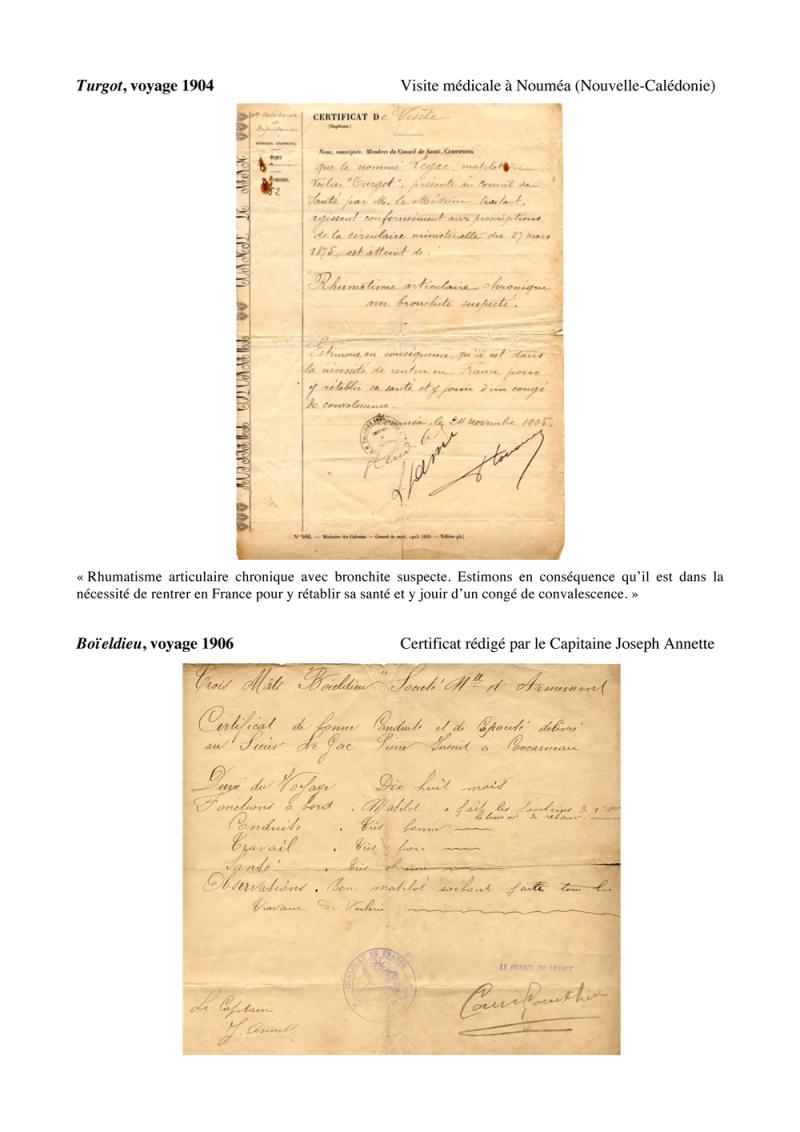 Turgot, voyage 1904 Visite médicale à Nouméa (Nouvelle-Calédonie)
CERTIFICAT De Visite
(Duplicata.)
Nous, soussignés, Membres du Conseil de Santé, CERTIFIONS
que le nommé Legac, matelot
Voilier "Turgot", présenté au Conseil de
Santé par M. le Médecin traitant,
agissant conformément aux prescriptions
de la circulaire ministérielle du 27 mars
1875, est atteint de:
Rhumatisme articulaire chronique
avec bronchite suspecte.
Estimons en conséquence, qu'il est dans
la nécessité de rentrer en France pour
y rétablir sa santé et y jouir d'un congé
de convalescence.
Nouméa, le 24 novembre 1905.
« Rhumatisme articulaire chronique avec bronchite suspecte. Estimons en conséquence qu’il est dans la
nécessité de rentrer en France pour y rétablir sa santé et y jouir d’un congé de convalescence. »
Boïeldieu, voyage 1906 Certificat rédigé par le Capitaine Joseph Annette
Trois Mâts "Boïeldieu" Société Nlle d'Armement
Certificat de bonne Conduite et de Capacité délivré
au Sieur Le Gac Pierre Inscrit à Concarneau
Durée du Voyage Dix huit mois
Fonctions à bord . Matelot a fait les fonctions de
Conduite . Très bonne
Travail . Très bon
Santé . Très bonne
Observations . Bon matelot sachant faire tous les
travaux de Voilerie
CONSULAT DE FRANCE
LE CONSUL DE FRANCE
Le Capitaine
J. Annett